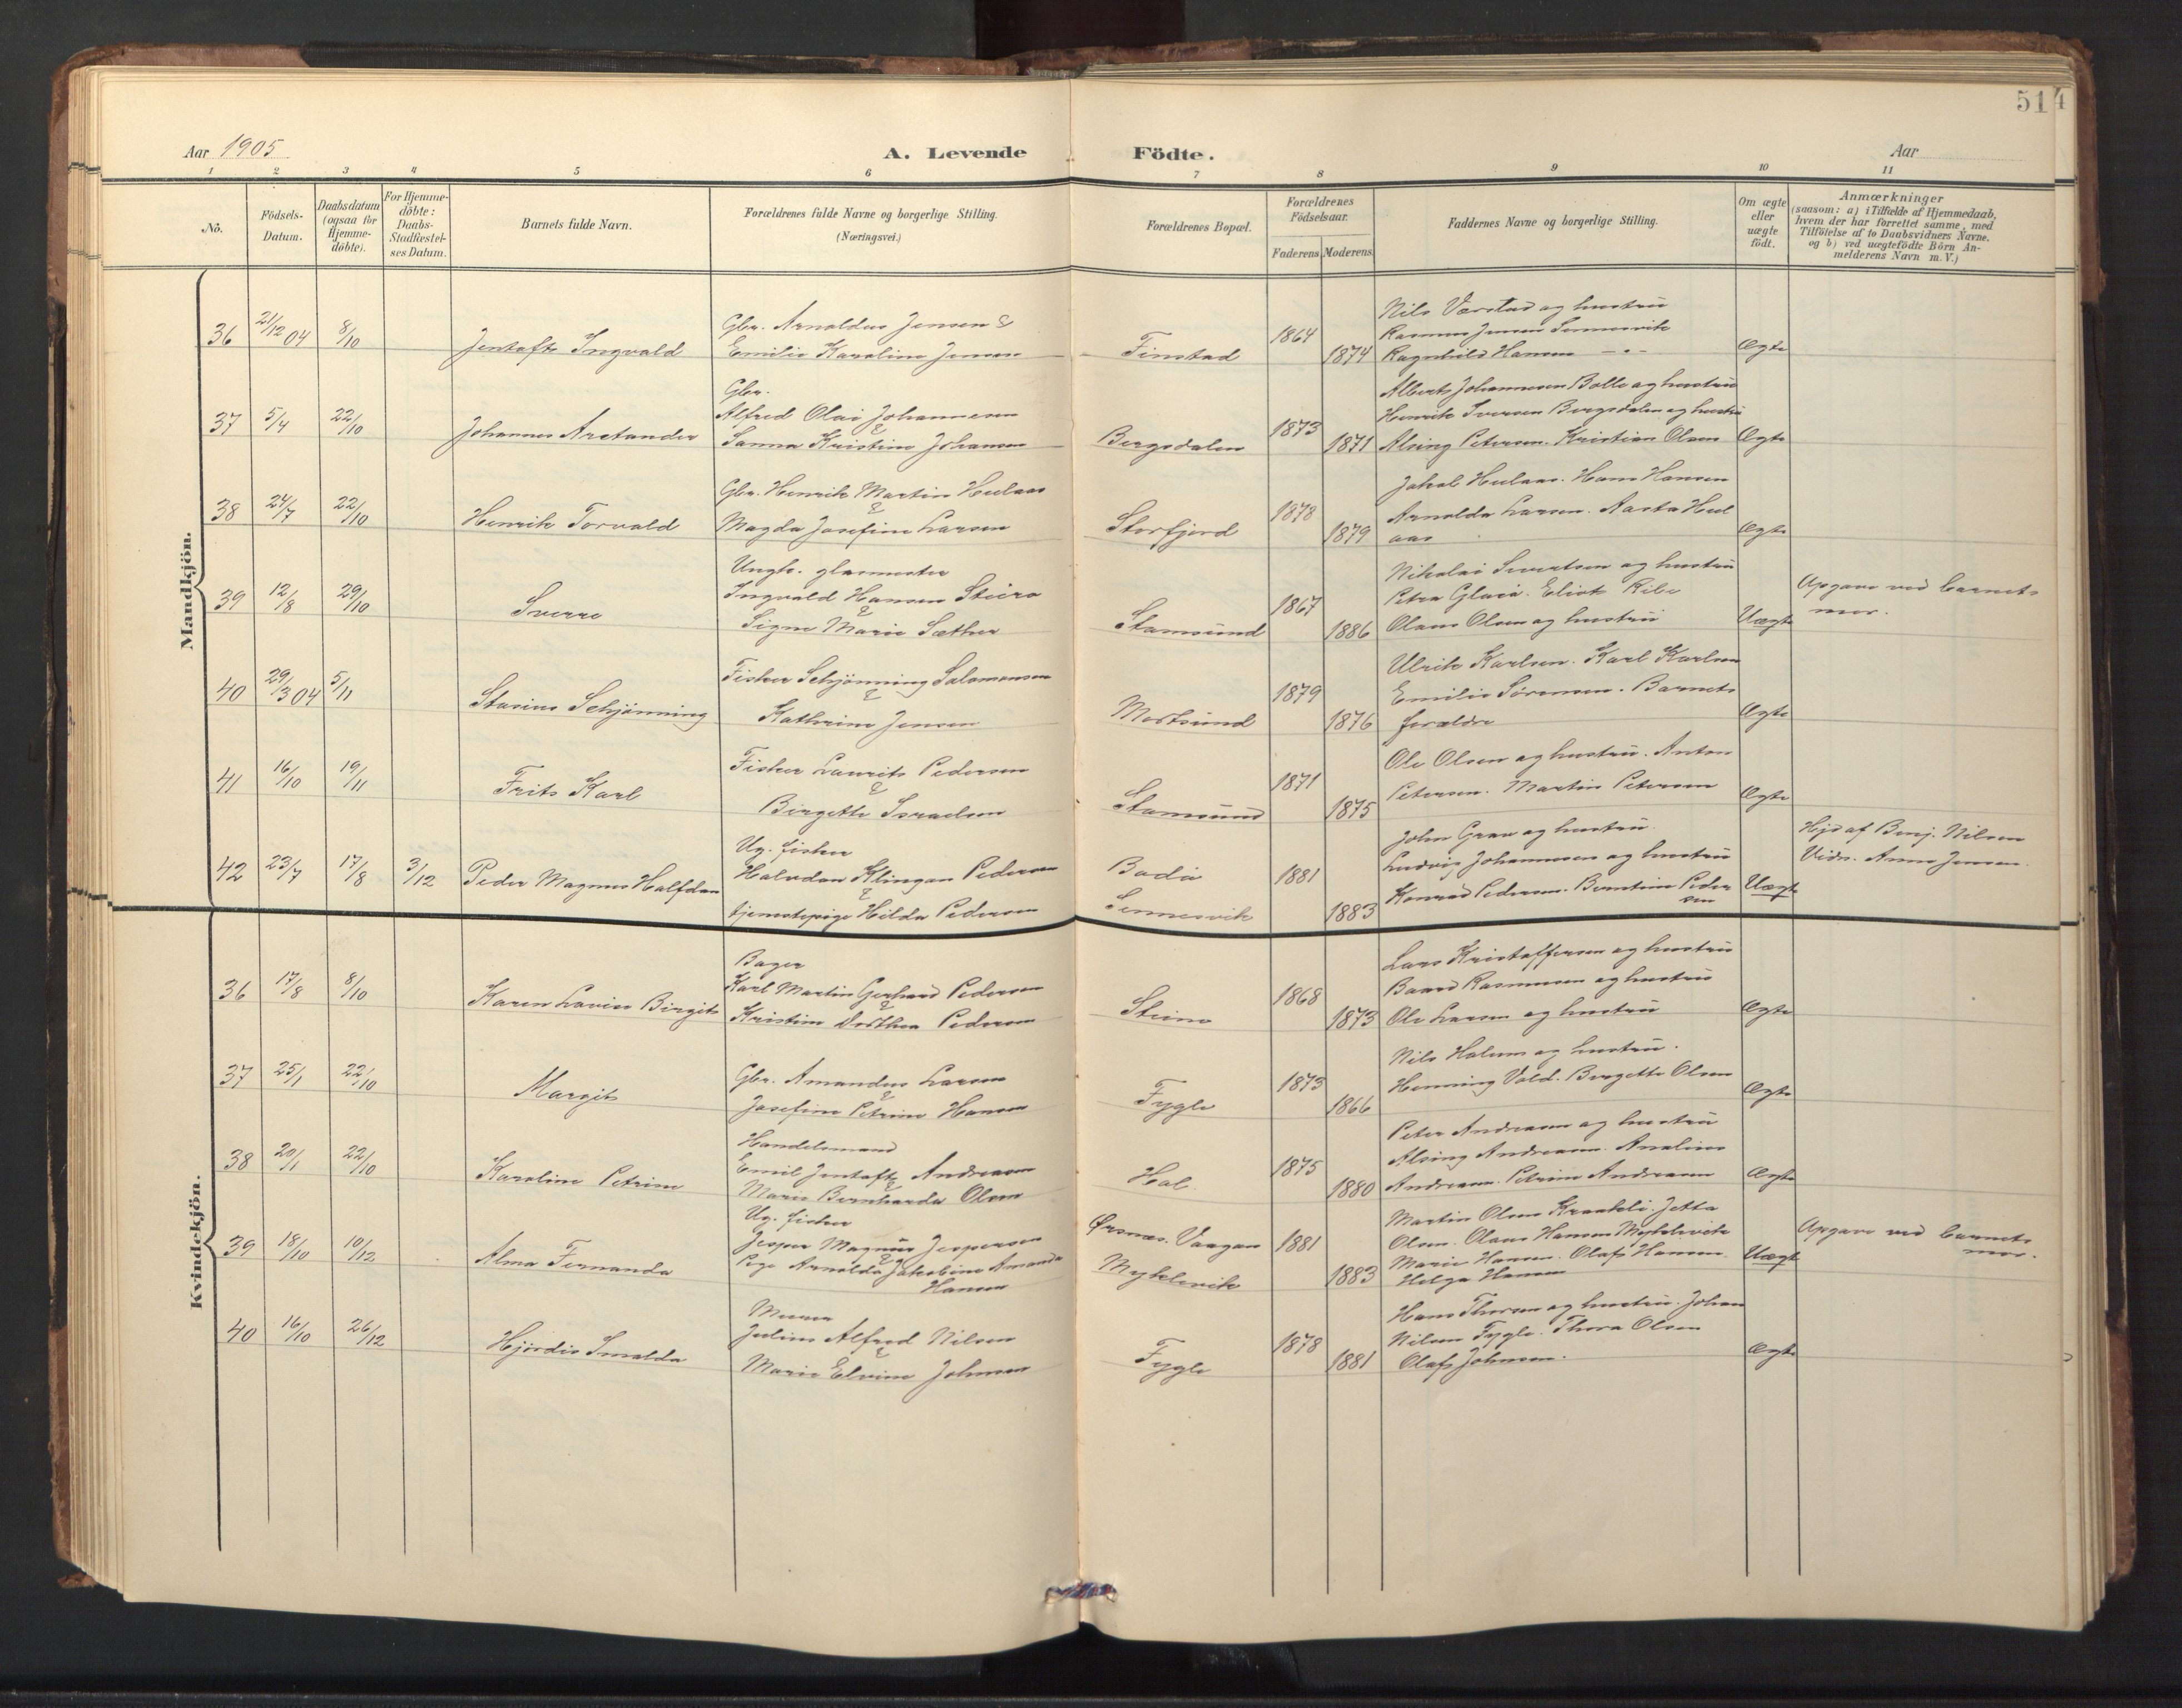 514
Aar 1905
A. Levende Födte.
Aar
1 2 3 4 5 6 7 8 9 10 11
Nö.
Födsels-Datum.
Daabsdatum (ogsaa for Hjemme-döbte).
For Hjemme-döbte: Daabs-Stadfæstel-ses Datum.
Barnets fulde Navn.
Forældrenes fulde Navne og borgerlige Stilling.
(Næringsvei.)
Forældrenes Bopæl.
Forældrenes Födselsaar.
Faderens Moderens
Faddernes Navne og borgerlige Stilling.
Om ægte eller uægte födt.
Anmærkninger
(saasom: a) i Tilfælde af Hjemmedaab,
hvem der har forrettet samme, med
Tilföielse af to Daabsvidners Navne,
og b) ved uægtefödte Börn An-
melderens Navn m. V.)
Mandkjön.
36 21/12 04 8/10
Jentoft Ingvald
Gbr. Arnoldus Jensen &
Emilie Karoline Jensen
Finstad
1864
1874
Nils Værstad og hustru
Rasmus Jensen Sennesvik
Ragnhild Hansen — " —
Ægte
37 5/4 22/10
Johannes Aretander
Gbr.
Alfred Olai Johannesen
&
Sanna Kristine Johansen
Bergsdalen
1873
1871
Albert Johannesen Bolle og hustru
Henrik Iversen Bergsdalen og hustru
Alsing Petersen. Kristian Olsen
Ægte
38 24/7 22/10
Henrik Torvald
Gbr. Henrik Martin Heulaas
&
Magda Josefine Larsen
Storfjord
1878
1879
Jakob Hulaas. Hans Hansen
Arnolda Larsen. Aasta Hul
aas
Ægte
39 12/8 29/10
Sverre
Ungk. glasmester
Ingvald Hansen Steiro
&
Signe Marie Sæther
Stamsund
1867
1886
Nikolai Sivertsen og hustru
Petra Glæia. Eliot Ribe
Olaus Olsen og hustru
Uægte
Opgave ved barnets
mor.
40 29/3 04 5/11
Stasius Schjønning
Fisker Schjønning Salamonsen
&
Kathrine Jensen
Mortsund
1879
1876
Ulrik Karlsen. Karl Karlsen
Emilie Sørensen. Barnets
forældre
Ægte
41 16/10 19/11
Frits Karl
Fisker Laurits Pedersen
&
Birgette Israelsen
Stamsund
1871
1875
Ole Olsen og hustru. Anton
Petersen. Martin Petersen
Ægte
42 23/7 17/8 3/12
Peder Magnus Halfdan
Ug. fisker
Halvdan Klingan Pedersen
&
tjenestepige Hilda Pedersen
Bodø
Sennesvik
1881
1883
John Grav og hustru.
Ludvig Johannesen og hustru
Konrad Pedersen. Berntine Peder
sen
Uægte
Hjd af Benj. Nilsen
Vidn. Anna Jensen.
Kvindekjön.
36 17/8 8/10
Karen Lovise Birgit
Bager
Karl Martin Gerhard Pedersen
&
Kristine Dorthea Pedersen
Steine
1868
1873
Lars Kristoffersen og hustru
Baard Rasmussen og hustru
Ole Larsen og hustru
Ægte
37 25/1 22/10
Margit
Gbr. Amandus Larsen
&
Josefine Petrine Hansen
Fygle
1873
1866
Nils Holum og hustru.
Henning Vold. Bergette Olsen
Ægte
38 20/1 22/10
Karoline Petrine
Handelsmand
Emil Jentoft Andreasen
&
Marie Bernharda Olsen
Hol.
1875
1880
Peter Andreasen og hustru
Alsing Andreasen. Analine
Andreasen. Petrine Andreasen
Ægte
39 18/10 10/12
Alma Fernanda
Ug. fisker
Jesper Magnus Jespersen
&
Pige Arnolda Jakobine Amanda
Hansen
Ørsnes. Vaagan
Myklevik
1881
1883
Martin Olsen Kraakli. Jetta
Olsen. Olaus Hansen Myklevik
Marie Hansen. Olaf Hansen
Helga Hansen
Uægte
Opgave ved barnets
mor.
40 16/10 26/12
Hjørdis Smolda
Murer
Julius Alfred Nilsen
&
Marie Elvine Johnsen
Fygle
1878
1881
Hans Thorsen og hustru. Johan
Nilsen Fygle. Thora Olsen
Olaf Johnsen.
Ægte